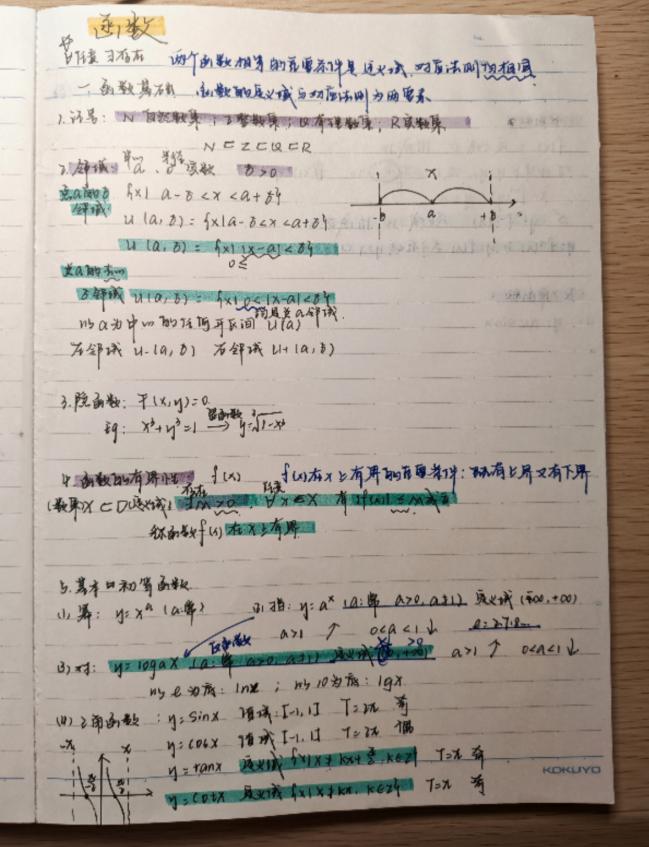 函数
∀任意 ∃存在 两个函数相等的充要条件是定义域、对应法则均相同
一、函数基本 函数的定义域与对应法则为两要素
1.记号: N 自然数集; Z整数集; Q有理数集; R实数集
N⊂Z⊂Q⊂R
2.邻域: a、δ 实数 δ>0
点a的δ {x| a-δ<x<a+δ}
邻域 U(a,δ)={x|a-δ<x<a+δ}
U(a,δ)={x||x-a|<δ}
0≤
点a的去心
δ邻域 U(a,δ)={x|0<|x-a|<δ}
以a为中心的任何开区间 U(a) 均是点a邻域
左邻域 U-(a,δ) 右邻域 U+(a,δ)
x
-δ a +δ
3.隐函数: F(x,y)=0
例: x³+y³=1 显函数 → y=³√1-x³
4.函数的有界性 f(x) f(x)在X上有界的充要条件: 既有上界又有下界
(数集)X⊂D(定义域) 存在 ∃M>0 任意 ∀x∈X 有 |f(x)|≤M成立
称函数f(x)在X上有界
5.基本初等函数
(1)幂: y=xᵃ (a:常) (2)指: y=aˣ (a:常 a>0, a≠1) 定义域 (-∞,+∞)
a>1 ↑ 0<a<1↓ e=2.718...
反函数
(3)对: y=logₐx (a:常 a>0, a≠1) 定义域 (0,+∞) x>0 a>1 ↑ 0<a<1↓
以e为底: lnx ; 以10为底: lgx
(4)三角函数: y=sinx 值域:[-1,1] T=2π 奇
y=cosx 值域[-1,1] T=2π 偶
y=tanx 定义域 {x|x≠kπ+π/2, k∈Z} T=π 奇
y=cotx 定义域{x|x≠kπ, k∈Z} T=π 奇
KOKUYO